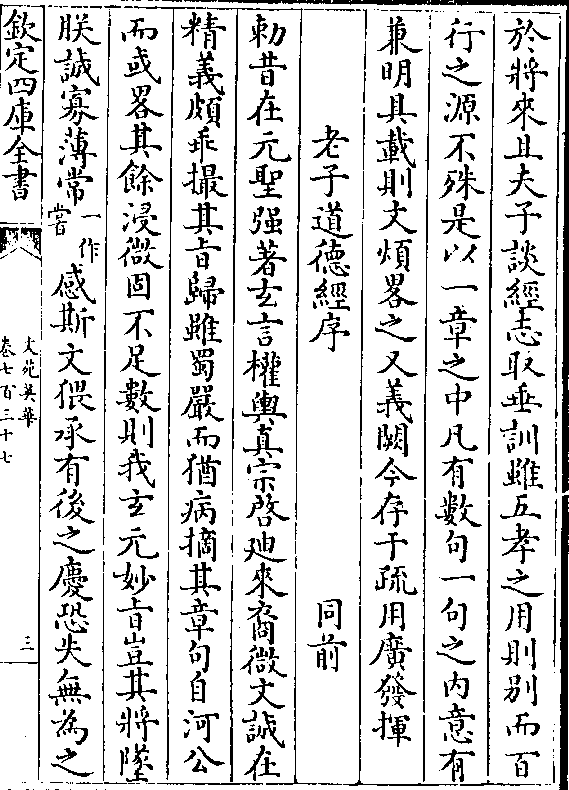 於將來且夫子談經志取垂訓雖五孝之用則别而百
行之源不殊是以一章之中凡有數句一句之内意有
兼明具載則文煩畧之又義闕今存于疏用廣發揮
老子道德經序　同前
勅昔在元聖强著玄言權輿真宗啓廸來裔微文誠在
精義頗乖撮其㫖歸雖蜀嚴而猶病摘其章句自河公
而或畧其餘浸微固不足數則我玄元妙㫖豈其將墜
朕誠寡薄常一作嘗感斯文猥承有後之慶恐失無為之
欽定四庫全書
文苑英華
卷七百三十七
三